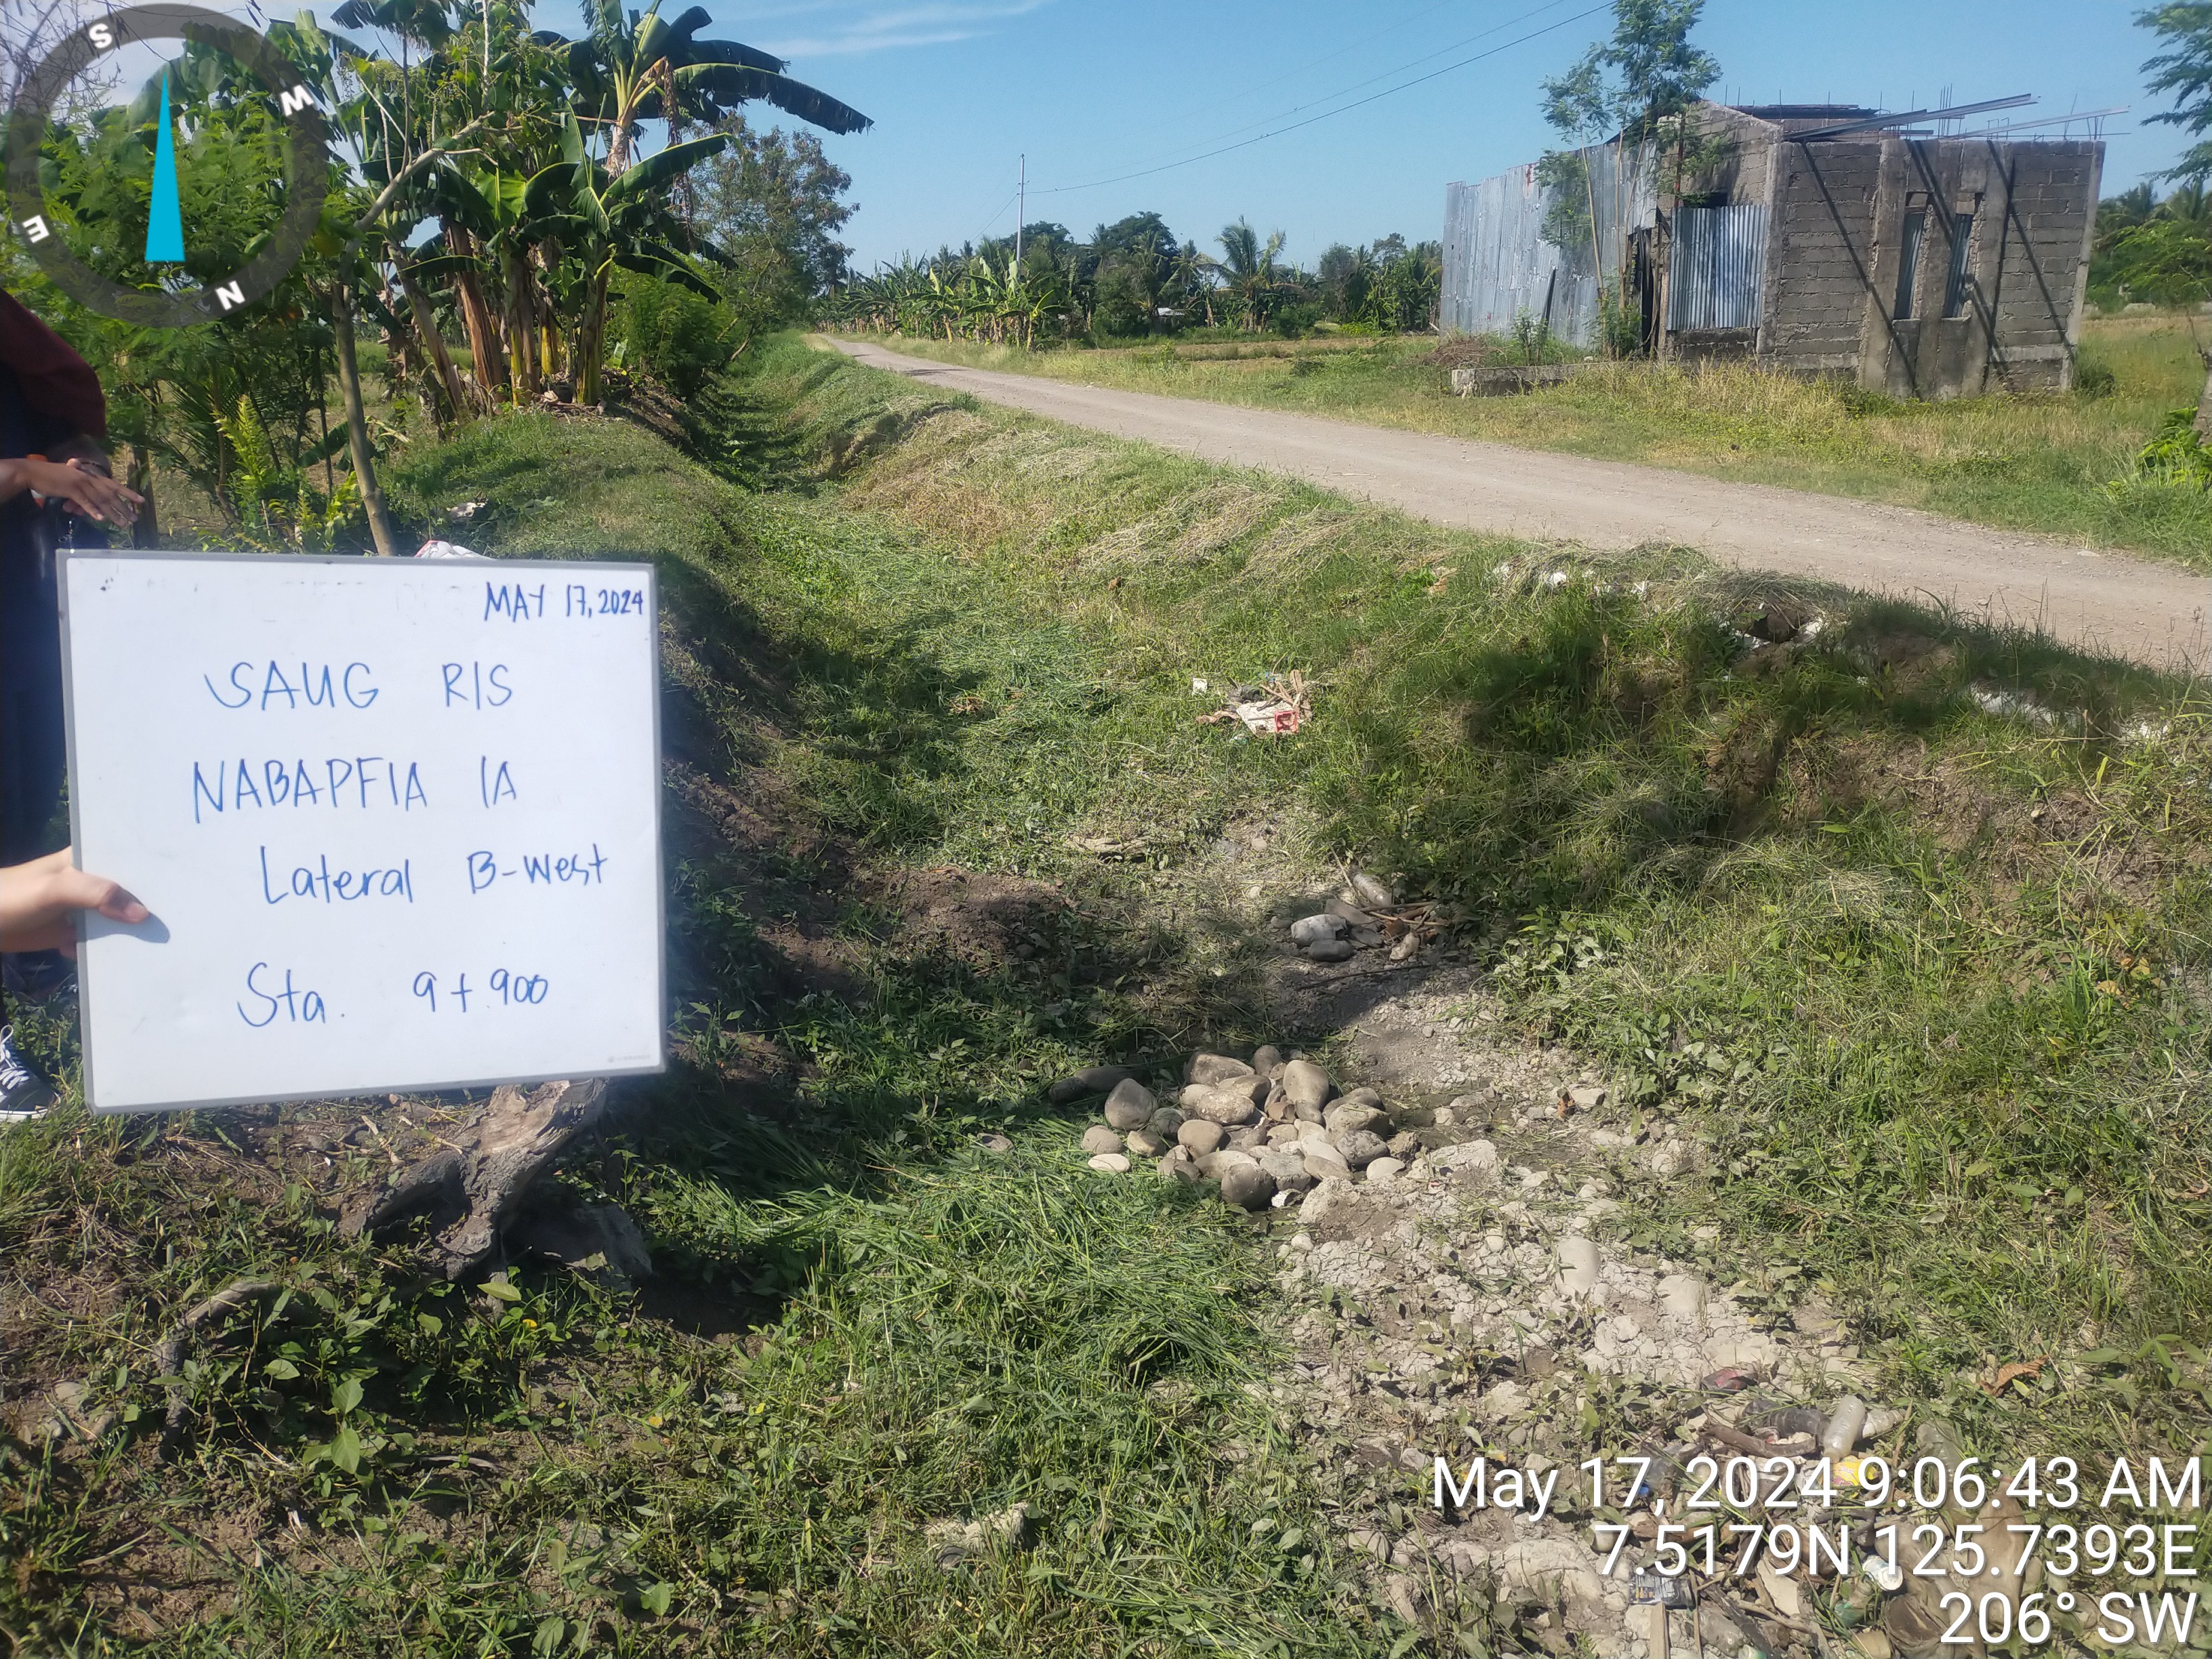 S
W
E
N
MAY 17, 2024
SAUG RIS
NABAPFIA IA
Lateral B-West
Sta. 9+900
May 17, 2024 9:06:43 AM
7.5179N 125.7393E
206° SW